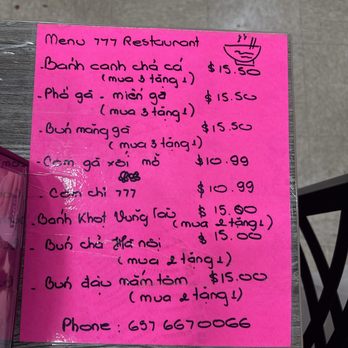 Menu 777 Restaurant
- Bánh canh chả cá $15.50
(mua 3 tặng 1)
- Phở gà - miến gà $15.50
(mua 3 tặng 1)
- Bún măng gà $15.50
(mua 3 tặng 1)
- Cơm gà xối mỡ $10.99
- Cơm chỉ 777 $10.99
- Bánh Khọt Vũng Tàu $15.00
(mua 2 tặng 1)
- Bún chả Hà nội $15.00
(mua 2 tặng 1)
- Bún đậu mắm tôm $15.00
(mua 2 tặng 1)
Phone : 657 6670066